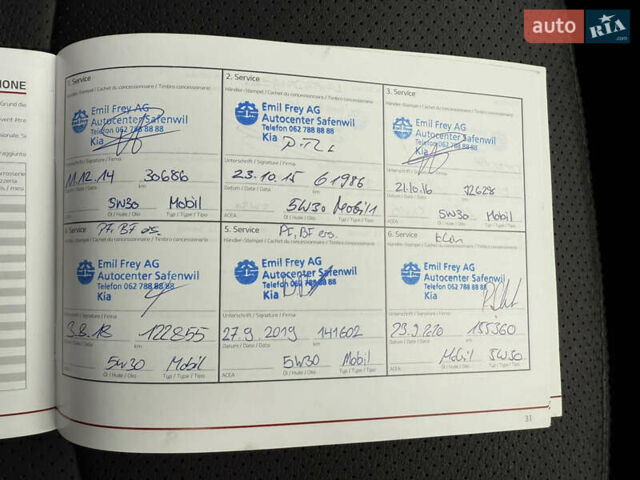 auto RIA
.com
IONE
Grund die
1. Service
Händler-Stempel / Cachet du concessionnaire / Timbro concessionario
Emil Frey AG
Autocenter Safenwil
Telefon 062 788 88 88
Kia
Unterschrift / Signature / Firma
11.12.14 30686
Datum / Date / Data km
5W30 Mobil
ACEA Öl / Huile / Olio Typ / Type / Tipo
2. Service
Händler-Stempel / Cachet du concessionnaire / Timbro concessionario
Emil Frey AG
Autocenter Safenwil
Telefon 062 788 88 88
Kia
Unterschrift / Signature / Firma
23.10.15 61986
Datum / Date / Data km
5W30 Mobil 1
ACEA Öl / Huile / Olio Typ / Type / Tipo
3. Service
Händler-Stempel / Cachet du concessionnaire / Timbro concessionario
Emil Frey AG
Autocenter Safenwil
Telefon 062 788 88 88
Kia
Unterschrift / Signature / Firma
21.10.16 72628
Datum / Date / Data km
5W30 Mobil
ACEA Öl / Huile / Olio Typ / Type / Tipo
4. Service PF, BF
Händler-Stempel / Cachet du concessionnaire / Timbro concessionario
Emil Frey AG
Autocenter Safenwil
Telefon 062 788 88 88
Kia
Unterschrift / Signature / Firma
3.8.18 122855
Datum / Date / Data km
5W30 Mobil
ACEA Öl / Huile / Olio Typ / Type / Tipo
5. Service PF, BF ers.
Händler-Stempel / Cachet du concessionnaire / Timbro concessionario
Emil Frey AG
Autocenter Safenwil
Telefon 062 788 88 88
Kia
Unterschrift / Signature / Firma
27.9.2019 141602
Datum / Date / Data km
5W30 Mobil
ACEA Öl / Huile / Olio Typ / Type / Tipo
6. Service
Händler-Stempel / Cachet du concessionnaire / Timbro concessionario
Emil Frey AG
Autocenter Safenwil
Telefon 062 788 88 88
Kia
Unterschrift / Signature / Firma
155360
Datum / Date / Data km
Mobil 5W30
ACEA Öl / Huile / Olio Typ / Type / Tipo
31